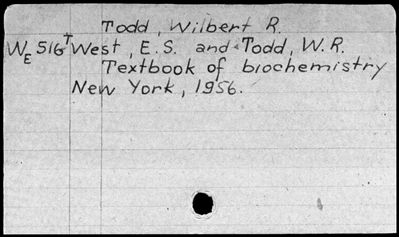 Todd, Wilbert R.
WE 516 T West, E.S. and Todd, W.R.
Textbook of biochemistry
New York, 1956.